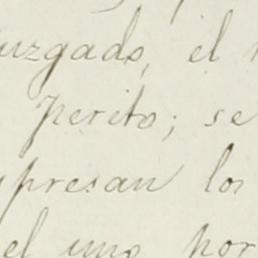 uzgado, el
perito; se
presan los
el uno por